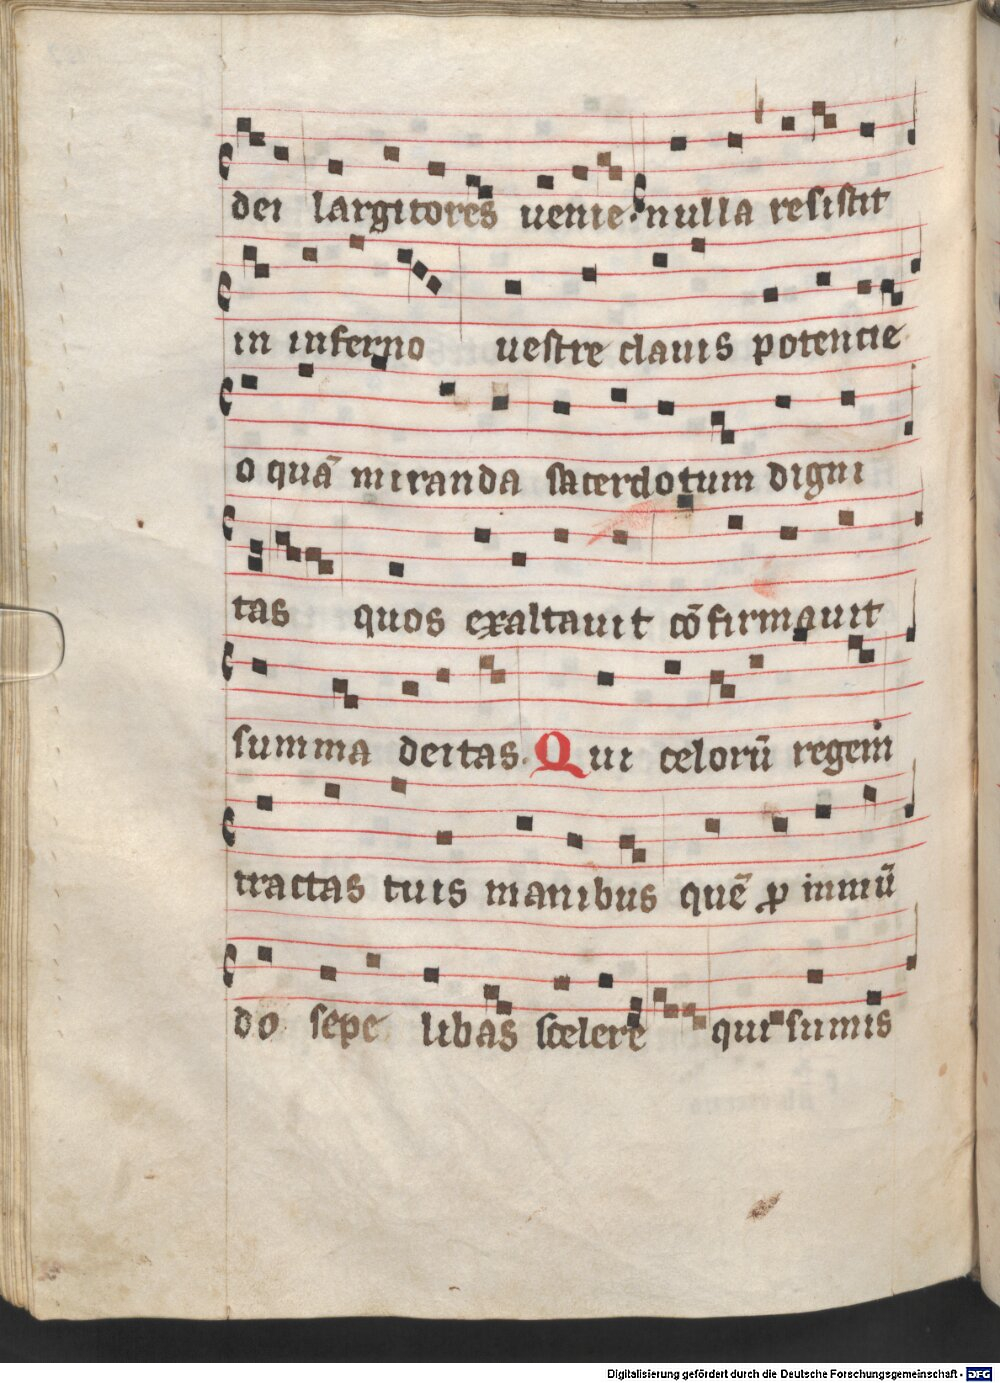 dei largitores uenie. nulla resistit
in inferno uestre clauis potencie
o quā miranda sacerdotum digni
tas quos exaltauit cōfirmauit
summa deitas. Qui celorū regem
tractas tuis manibus quē ꝓ inmū
do sepe libas scelere qui sumis
Digitalisierung gefördert durch die Deutsche Forschungsgemeinschaft - DFG